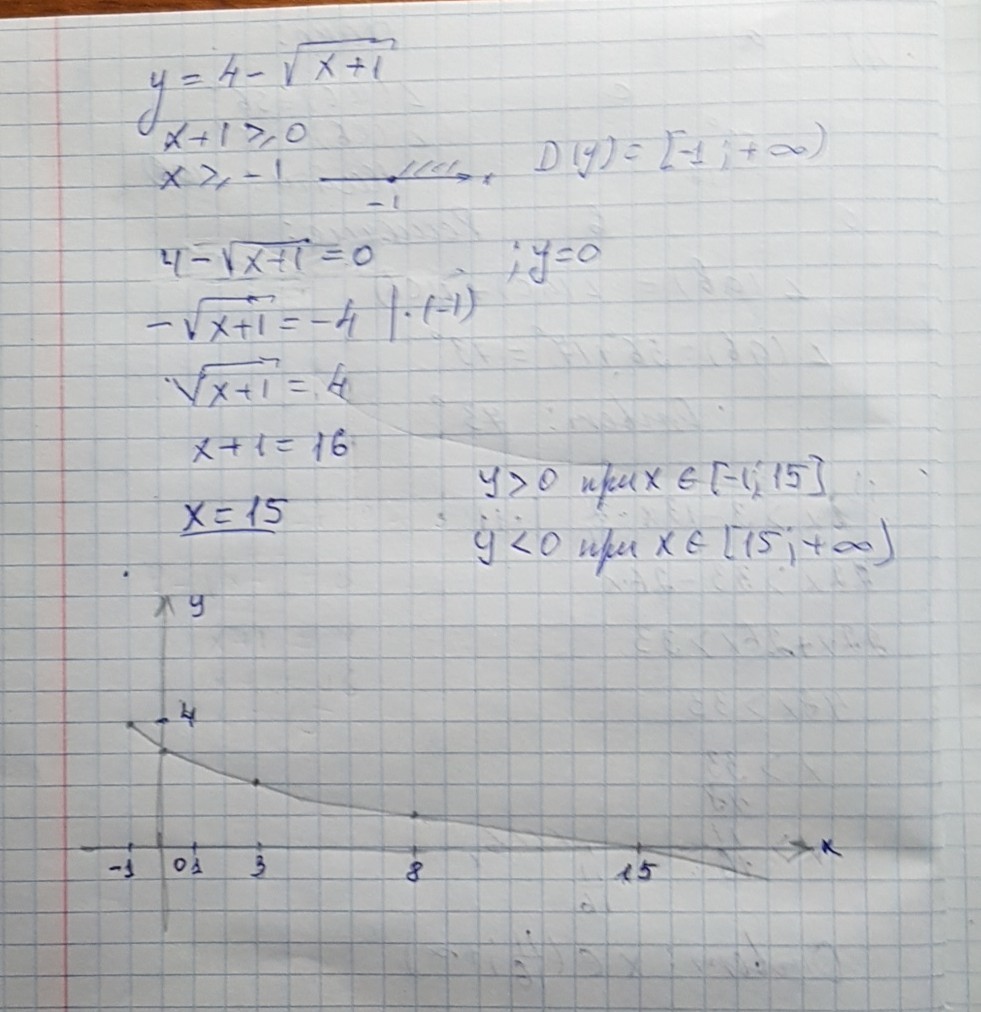 y = 4 - √x+1
x+1 ⩾ 0
x ⩾ -1 -1 x D(y) = [-1; +∞)
4 - √x+1 = 0 ; y=0
-√x+1 = -4 | · (-1)
√x+1 = 4
x+1 = 16
y > 0 при x ∈ [-1; 15]
x = 15
y < 0 при x ∈ [15; +∞)
y
4
x
-1 0 1 3 8 15